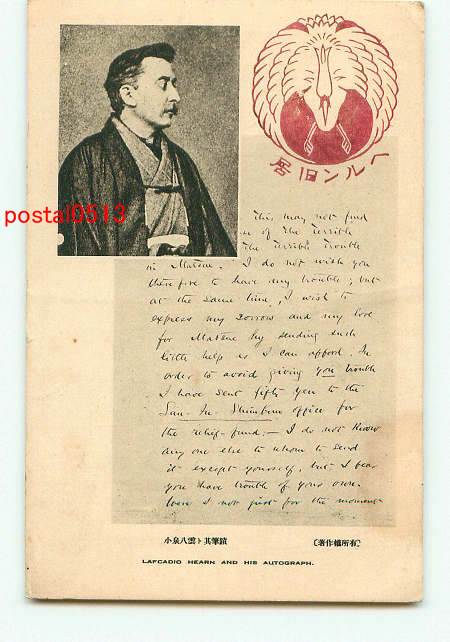 ヘルン旧居
postal0513
This may not find
of the terrible
the terrible trouble
in Matsue. I do not wish you
therefore to have any trouble; but
at the same time, I wish to
express my sorrow and my love
for Matsue by sending such
little help as I can afford. In
order to avoid giving you trouble
I have sent fifty yen to the
San-In Shimbun office for
the relief-fund:— I do not know
any one else to whom to send
it except yourself, but I fear
you have trouble of your own.
Were I not just for the moment
小泉八雲ト其筆蹟
〔著作権所有〕
LAFCADIO HEARN AND HIS AUTOGRAPH.